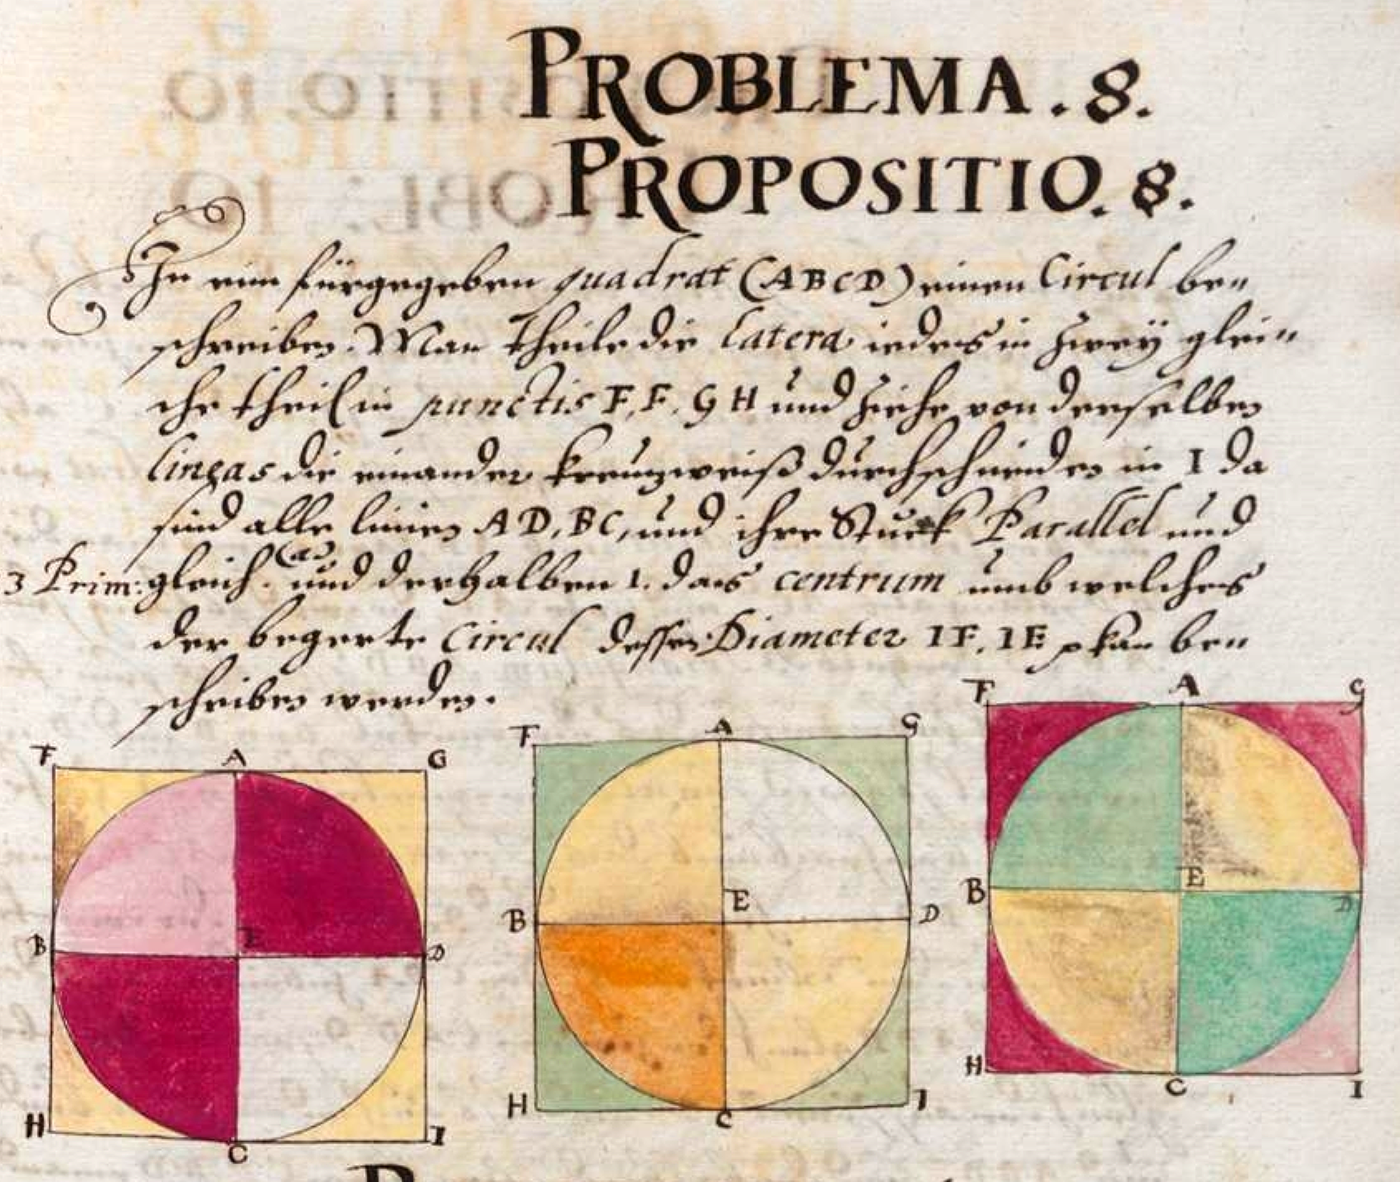 PROBLEMA. 8.
PROPOSITIO. 8.
In eim fürgegeben quadrat (ABCD) einen Circul be„
schreiben. Man theile die latera iedes in zwey glei„
che theil in punctis F, F, G H und ziehe von derselben
lineas die einander kreuzweiß durchschneiden in I da
sind alle linien AD, BC, und ihre Stuck Parallel und
3 Prim: gleich. und derhalben I. das centrum umb welches
der begerte Circul dessen Diameter IF, IE kan be„
schriben werden.
F A G
B E D
H C I
F A G
B E D
H C I
F A G
B E D
H C I